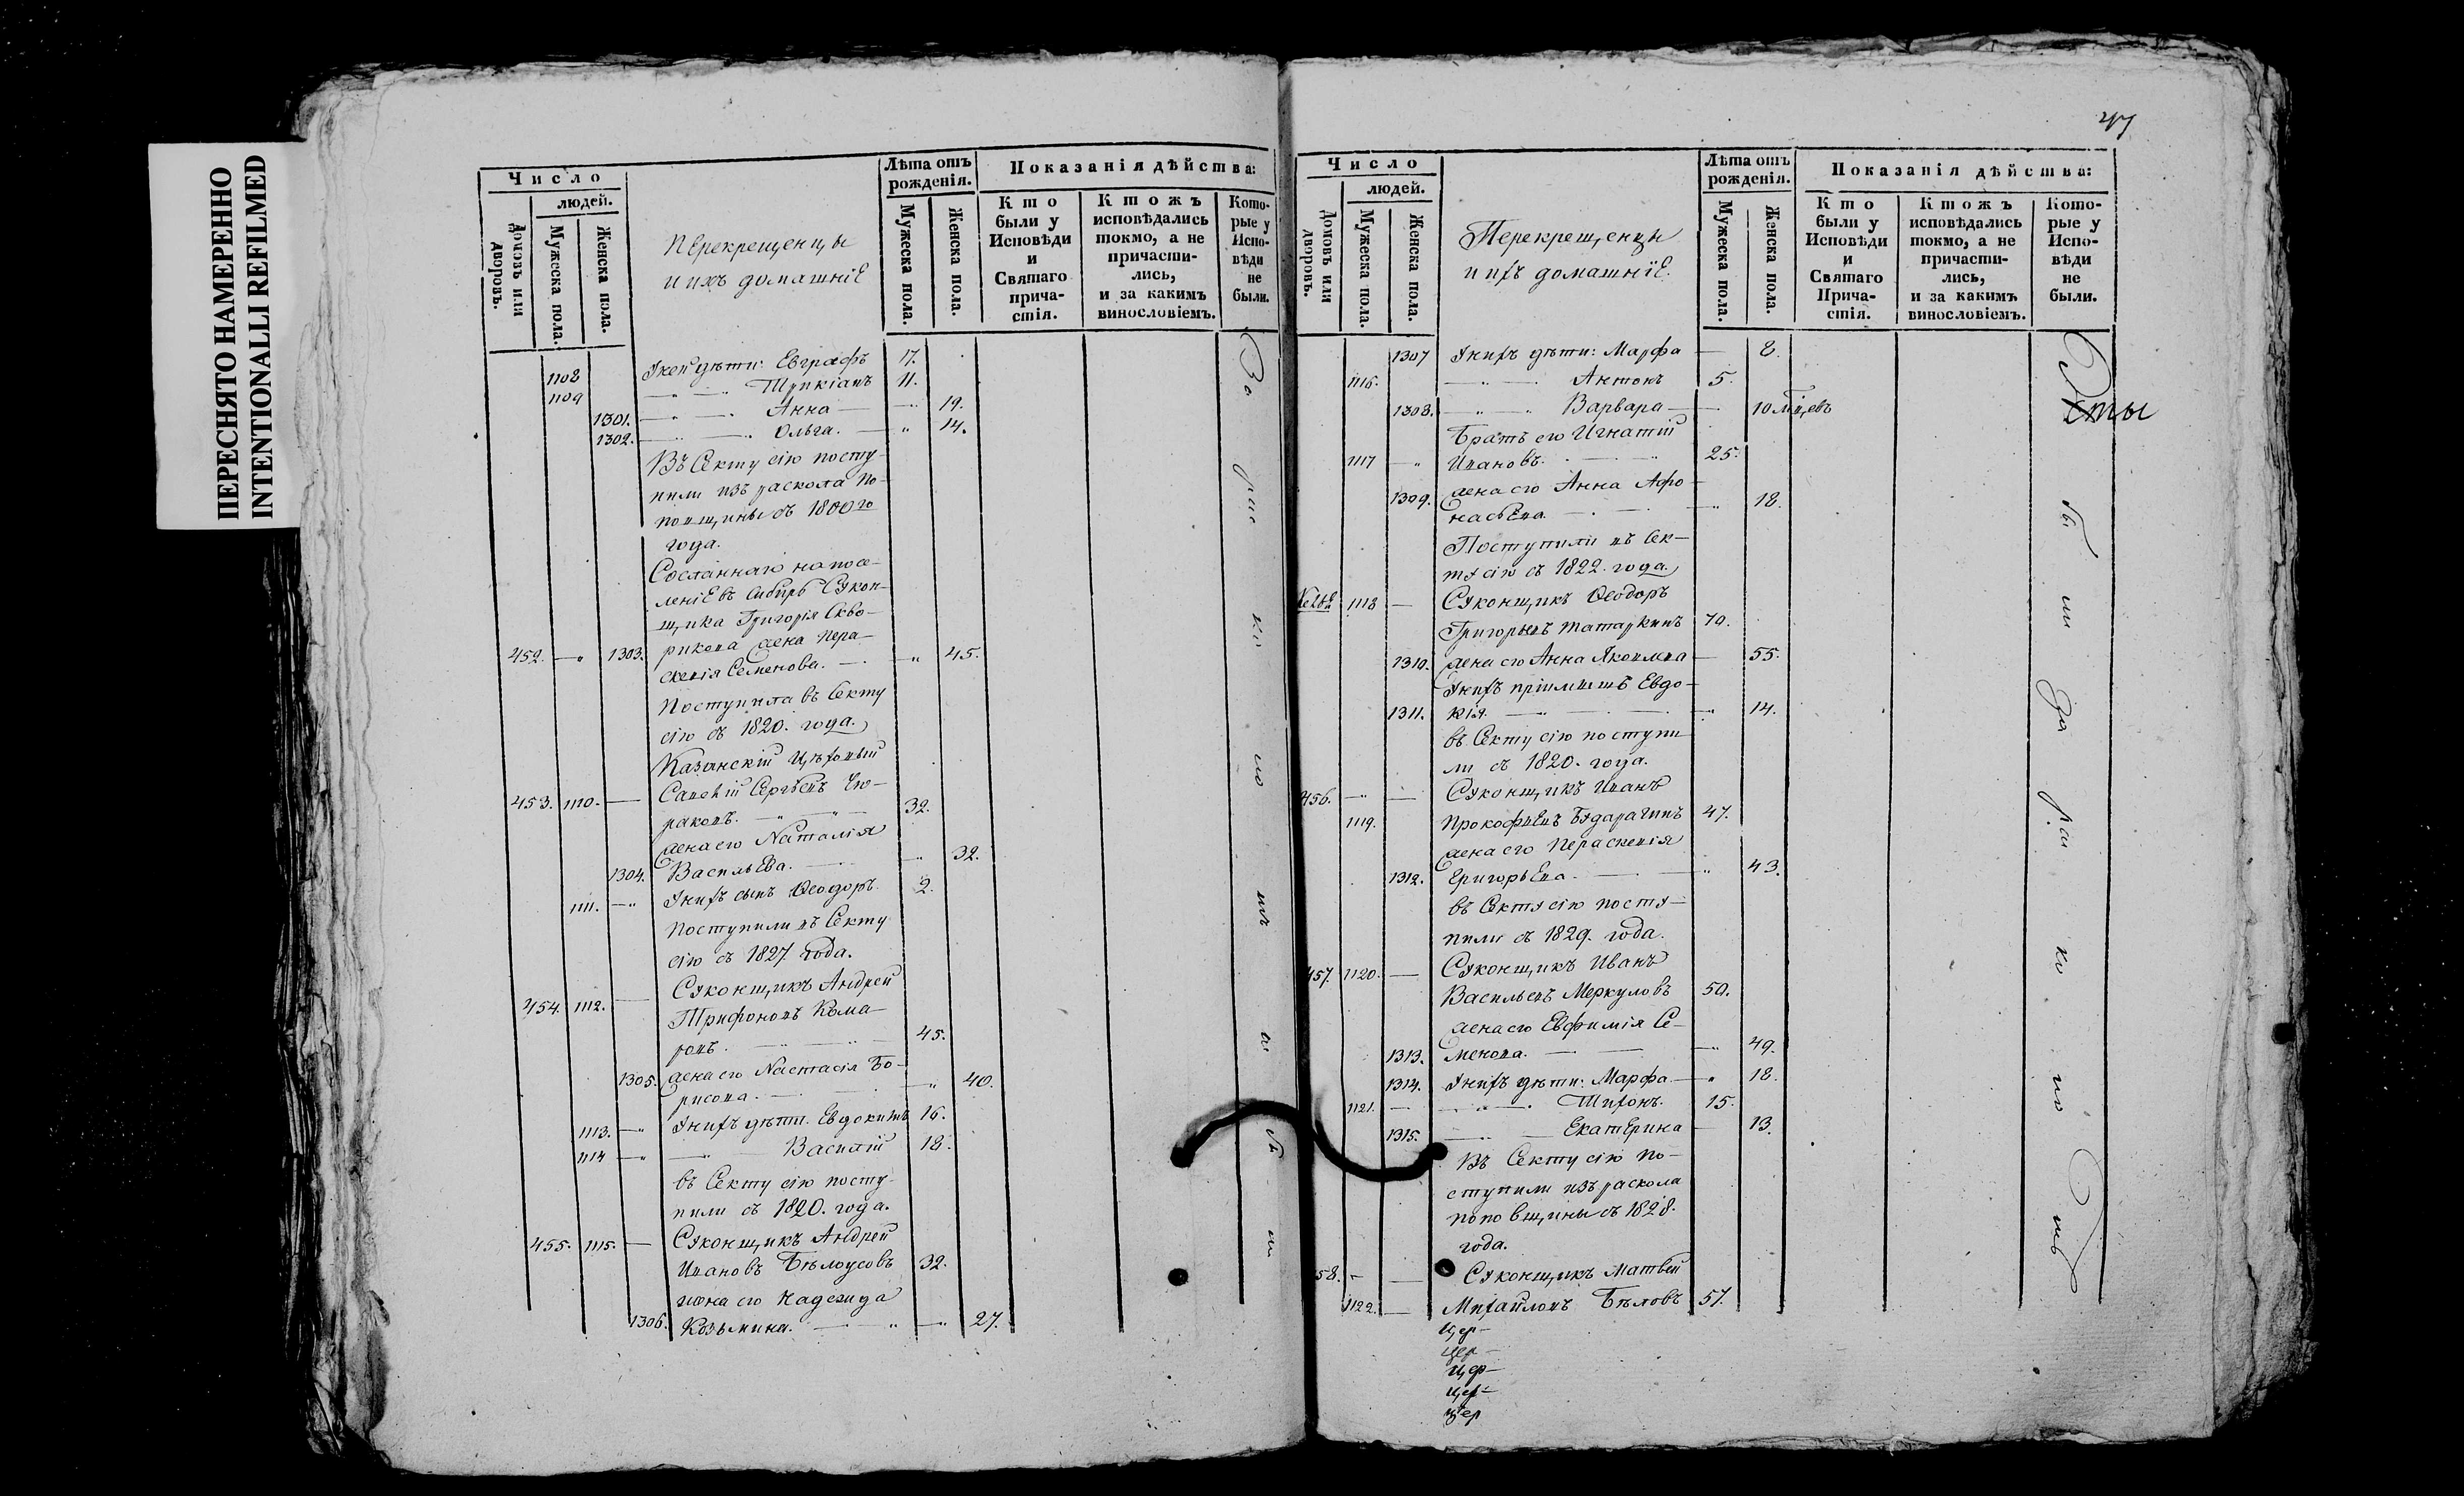 ПЕРЕСНЯТО НАМЕРЕННО
INTENTIONALLI REFILMED
Число
людей.
Домовъ или дворовъ.
Мужеска пола.
Женска пола.
Перекрещенцы
и ихъ домашніе
Лѣта отъ рожденія.
Мужеска пола.
Женска пола.
Показанія дѣйства:
Кто были у Исповѣди и Святаго причастія.
Ктожъ исповѣдались токмо, а не причастились, и за какимъ винословіемъ.
Которые у Исповѣди не были.
1108 дѣти: Евграфъ 17.
1109 11.
1301. Анна 19.
1302. Ольга. 14.
Въ Секту сію посту-
пили изъ раскола по-
повщины съ 1800го
года.
Сосланнаго на посе-
леніе въ Сибирь Сукон-
щика Григорія Скво-
452. 1303. рикова жена Пера-
скевія Семенова. 45.
Поступила въ Секту
сію съ 1820. года
Казанскій Цѣховый
453. 1110. Савелій Сергѣевъ Чю-
раковъ. 32.
жена его Наталія
1304. Васильева. 32.
1111. Ихъ сынъ Ѳеодоръ 2.
Поступили въ Секту
сію съ 1827 года.
Суконщикъ Андрей
454. 1112. Трифоновъ Кома-
ровъ. 45.
1305. жена его Настасія Бо-
рисова. 40.
1113. дѣти. Евдокимъ 16.
1114 Василій 18.
въ Секту сію посту-
пили съ 1820. года.
455. 1115. Суконщикъ Андрей
Ивановъ Бѣлоусовъ 32.
жена его Надежда
1306. Козьмина. 27.
Во рас ко но
47
Число
людей.
Домовъ или дворовъ.
Мужеска пола.
Женска пола.
Перекрещенцы
и ихъ домашніе.
Лѣта отъ рожденія.
Мужеска пола.
Женска пола.
Показанія дѣйства:
Кто были у Исповѣди и Святаго Причастія.
Ктожъ исповѣдались токмо, а не причастились, и за какимъ винословіемъ.
Которые у Исповѣди не были.
1307 дѣти: Марфа 8.
1116. Антонъ 5.
1308. Варвара 10 мѣцевъ
Братъ его Игнатій
1117 Ивановъ. 25.
1309. жена его Анна Афо-
насьева. 18.
Поступили въ Сек-
ту сію съ 1822. года
1118 Суконщикъ Ѳеодоръ
Григорьевъ Татаркинъ 70.
1310. жена его Анна Яковлева 55.
пріимышъ Евдо-
1311. кія. 14.
въ Секту сію поступи
ли съ 1820. года.
456. Суконщикъ Иванъ
1119. Прокофьевъ Бударагинъ 47.
жена его Пераскевія
1312. Григорьева. 43.
въ Секту сію посту-
пили съ 1829. года.
457. 1120. Суконщикъ Иванъ
Васильевъ Меркуловъ 50.
жена его Евфимія Се-
1313. менова. 49.
1314. дѣти: Марфа 18.
1121. Тихонъ. 15.
1315. Екатерина 13.
Въ Секту сію по-
ступили изъ раскола
поповщины съ 1828.
года.
58. Суконщикъ Матвей
1122. Михайловъ Бѣловъ 57.
бы ли за рас ко
цер-
цер-
цер-
цер-
цер